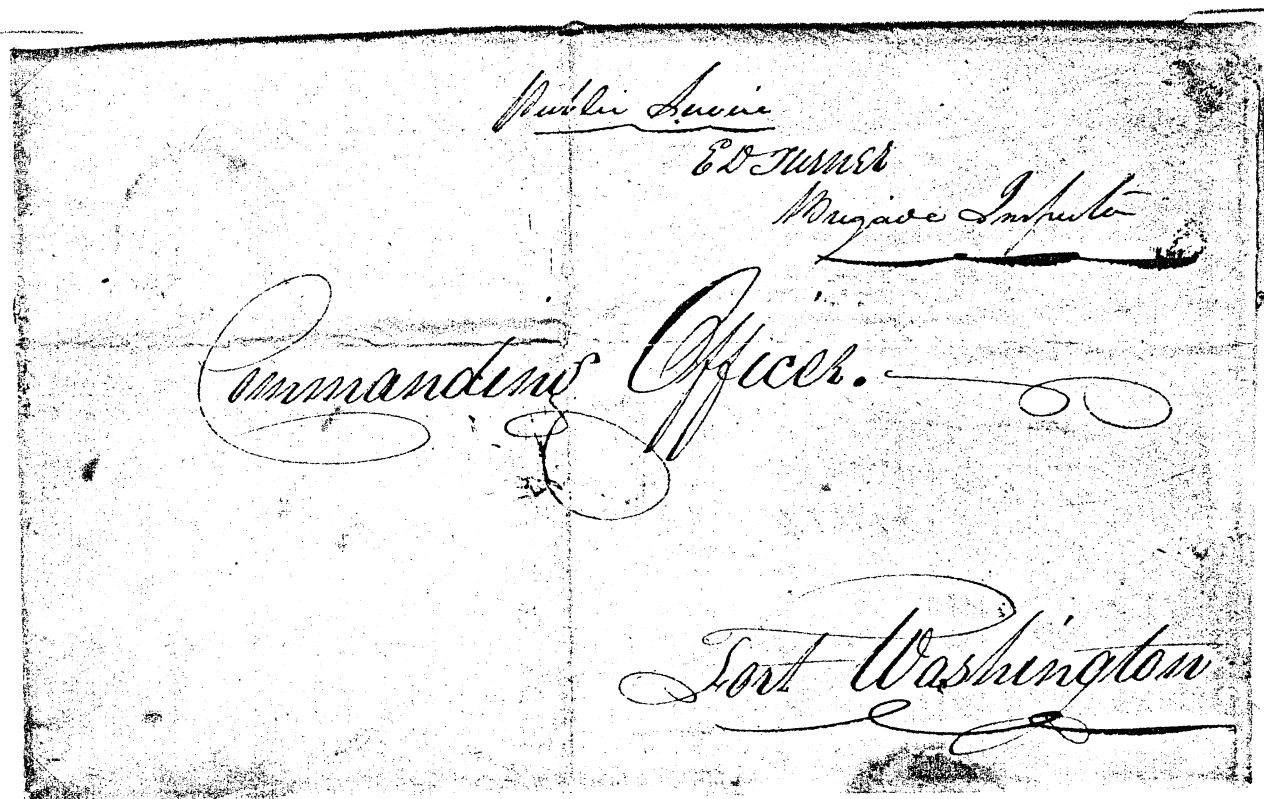 Public Service
ED Turner
Brigade Inspector
Commanding Officer.
Fort Washington